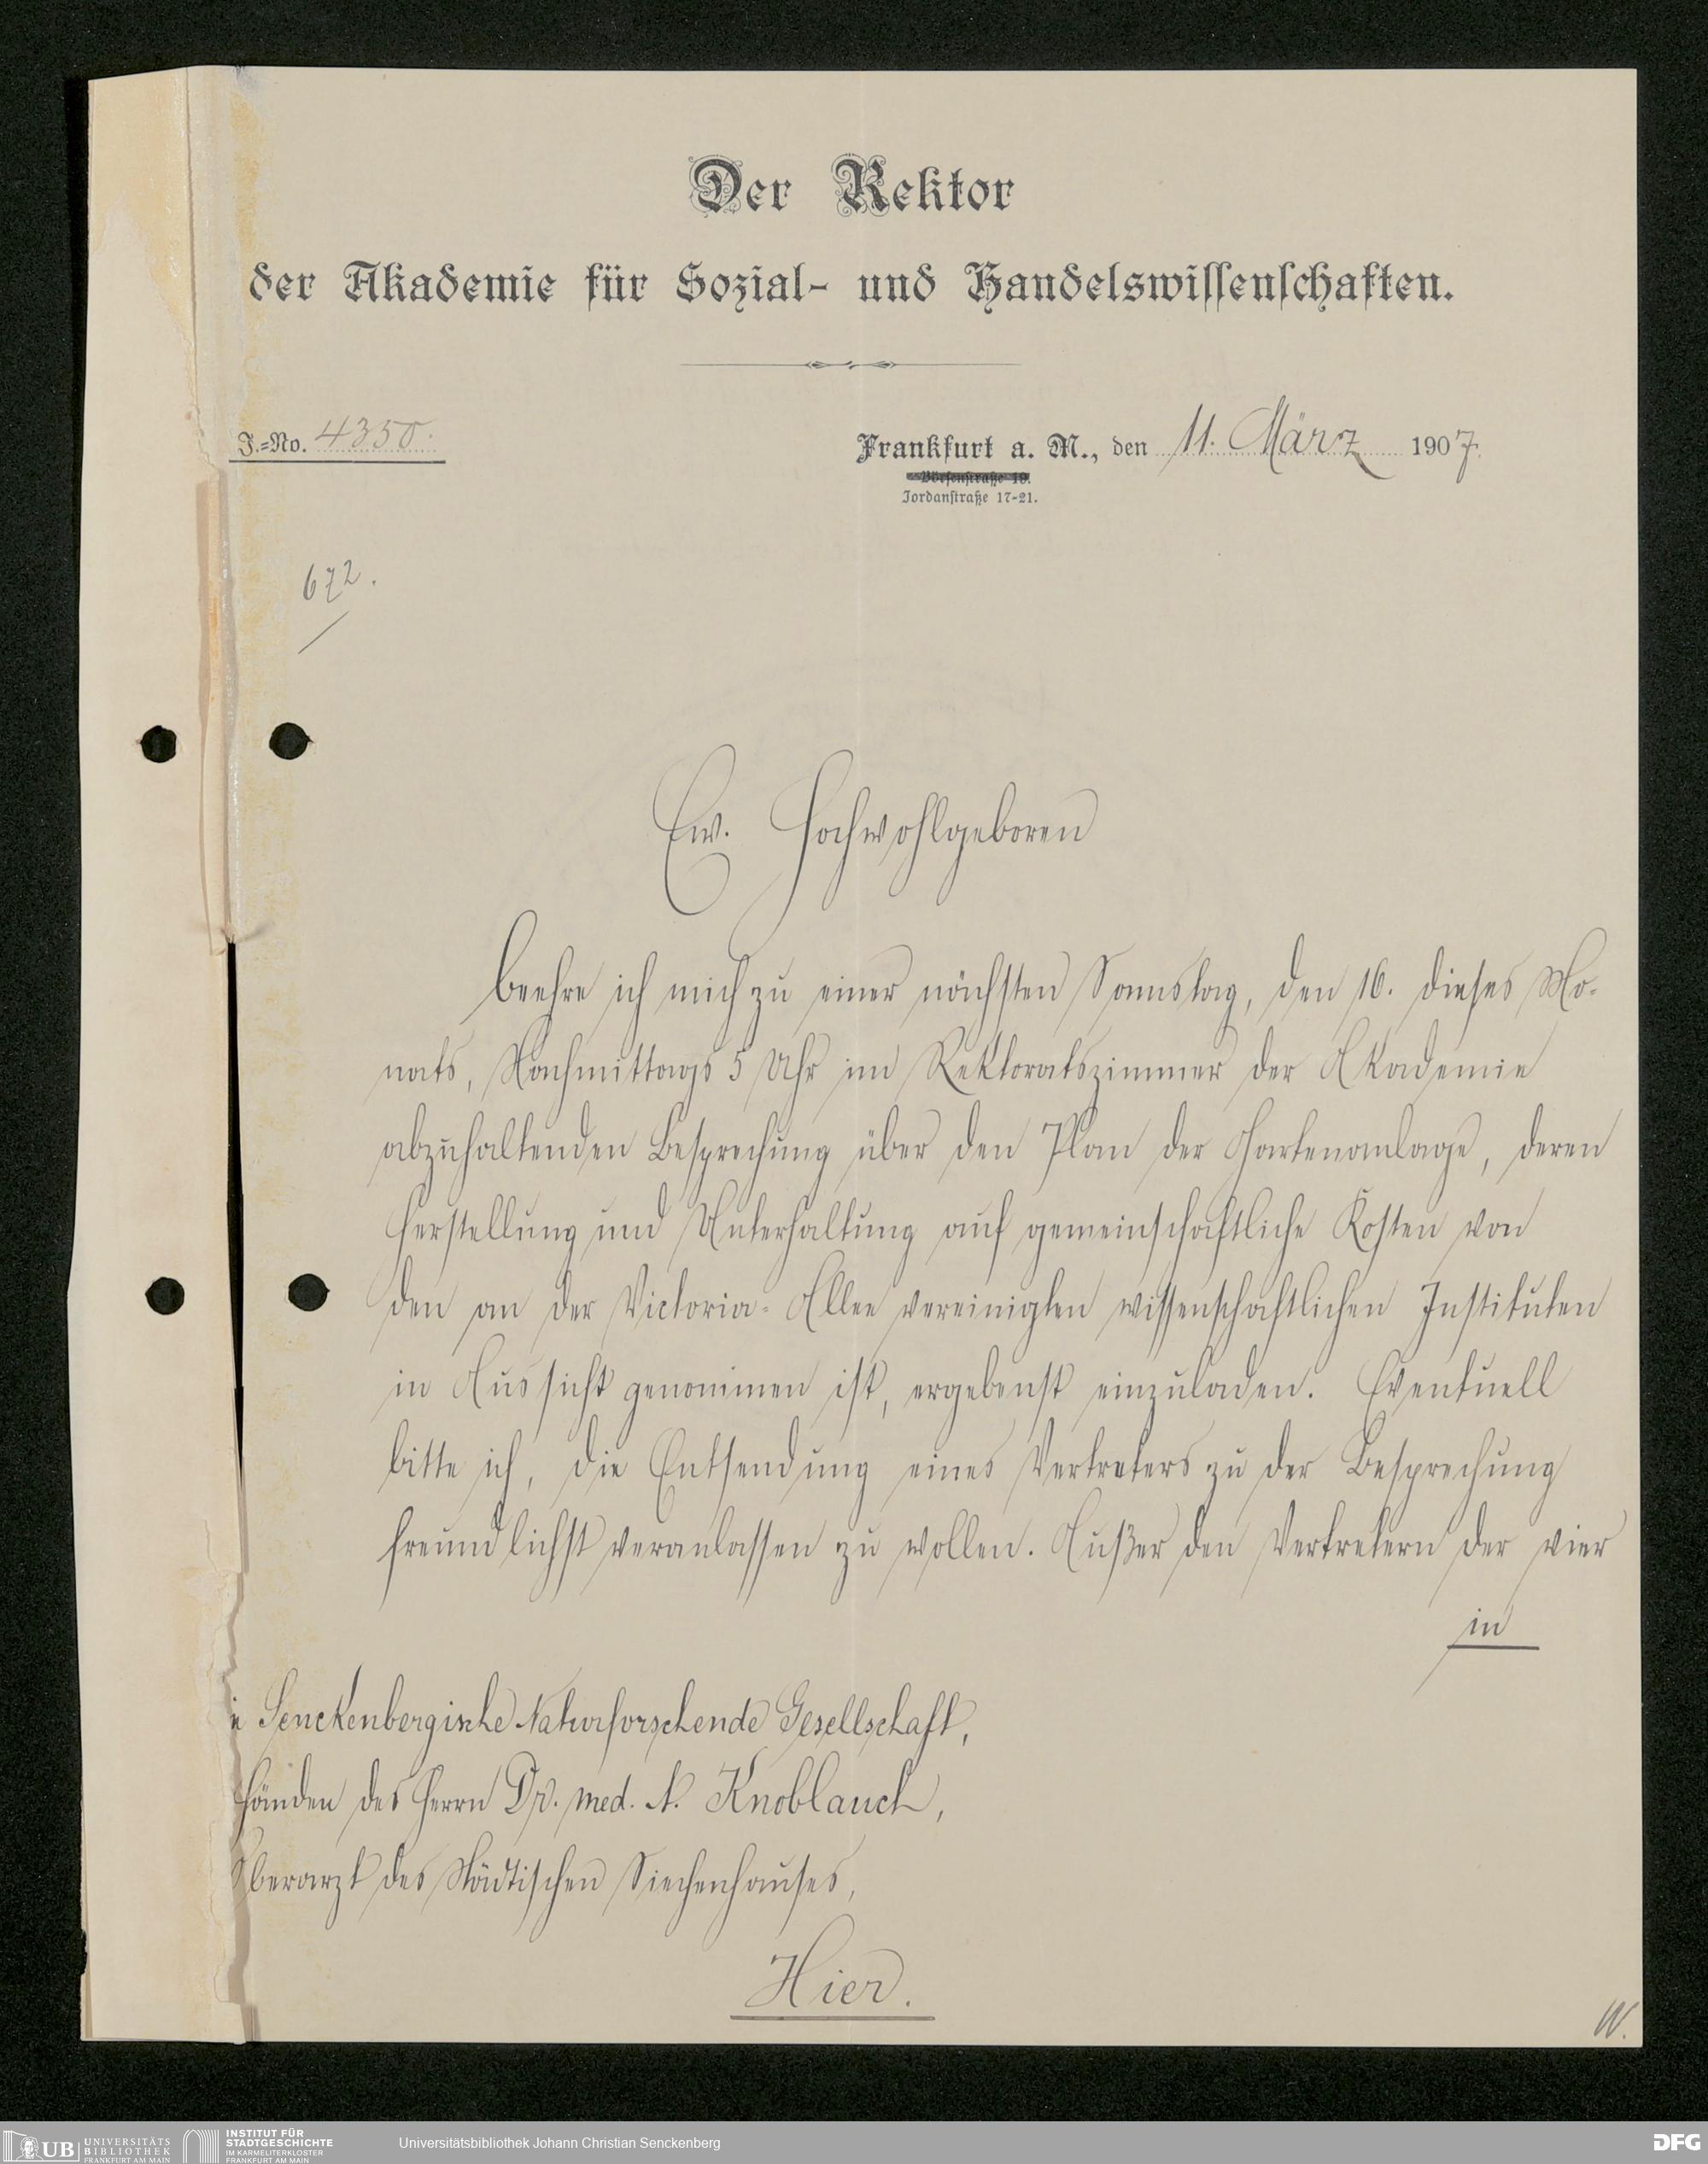 Der Rektor
der Akademie für Sozial- und Handelswissenschaften.
J.-No. 4350.
Frankfurt a. M., den 11. März 1907.
Börsenstraße 19.
Jordanstraße 17-21.
672.
Ew. Hochwohlgeboren
beehre ich mich zu einer nächsten Samstag, den 16. dieses Mo-
nats, Nachmittags 5 Uhr im Rektoratszimmer der Akademie
abzuhaltenden Besprechung über den Plan der Gartenanlage, deren
Herstellung und Unterhaltung auf gemeinschaftliche Kosten von
den an der Victoria-Allee vereinigten wissenschaftlichen Instituten
in Aussicht genommen ist, ergebenst einzuladen. Eventuell
bitte ich, die Entsendung eines Vertreters zu der Besprechung
freundlichst veranlassen zu wollen. Außer den Vertretern der vier
in
Senckenbergische Naturforschende Gesellschaft,
Händen des Herrn Dr. med. A. Knoblauch,
Oberarzt des Städtischen Siechenhauses,
Hier.
W.
UB UNIVERSITÄTS
BIBLIOTHEK
FRANKFURT AM MAIN
INSTITUT FÜR
STADTGESCHICHTE
IM KARMELITERKLOSTER
FRANKFURT AM MAIN
Universitätsbibliothek Johann Christian Senckenberg
DFG